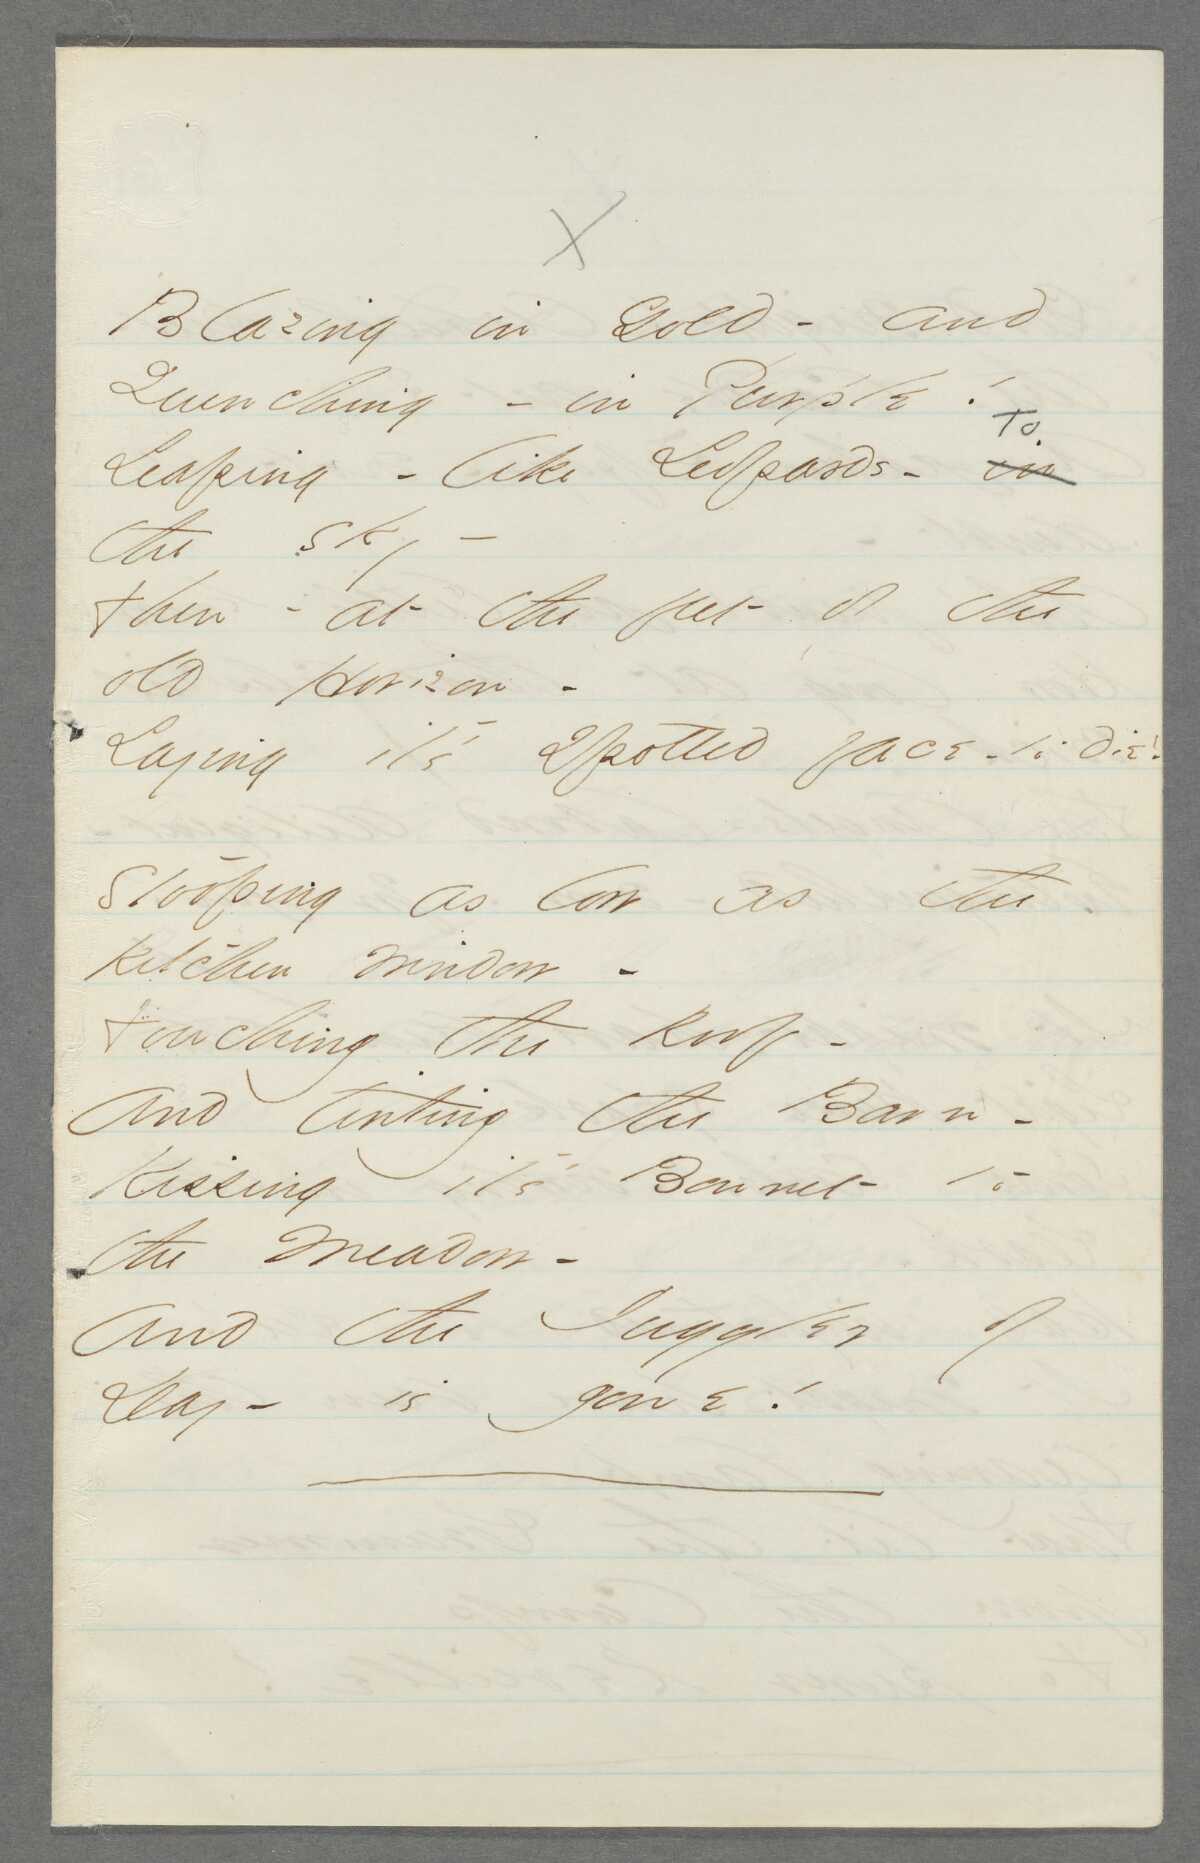 X
Blazing in Gold - and
Quenching - in Purple!
To
Leaping - like Leopards - in
the sky -
then - at the feet of the
old Horizon -
Laying it's spotted face - to die!
Stooping as low as the
kitchen window -
touching the Roof -
And tinting the Barn -
Kissing it's Bonnet to
the Meadow -
And the Juggler of
Day - is gone!